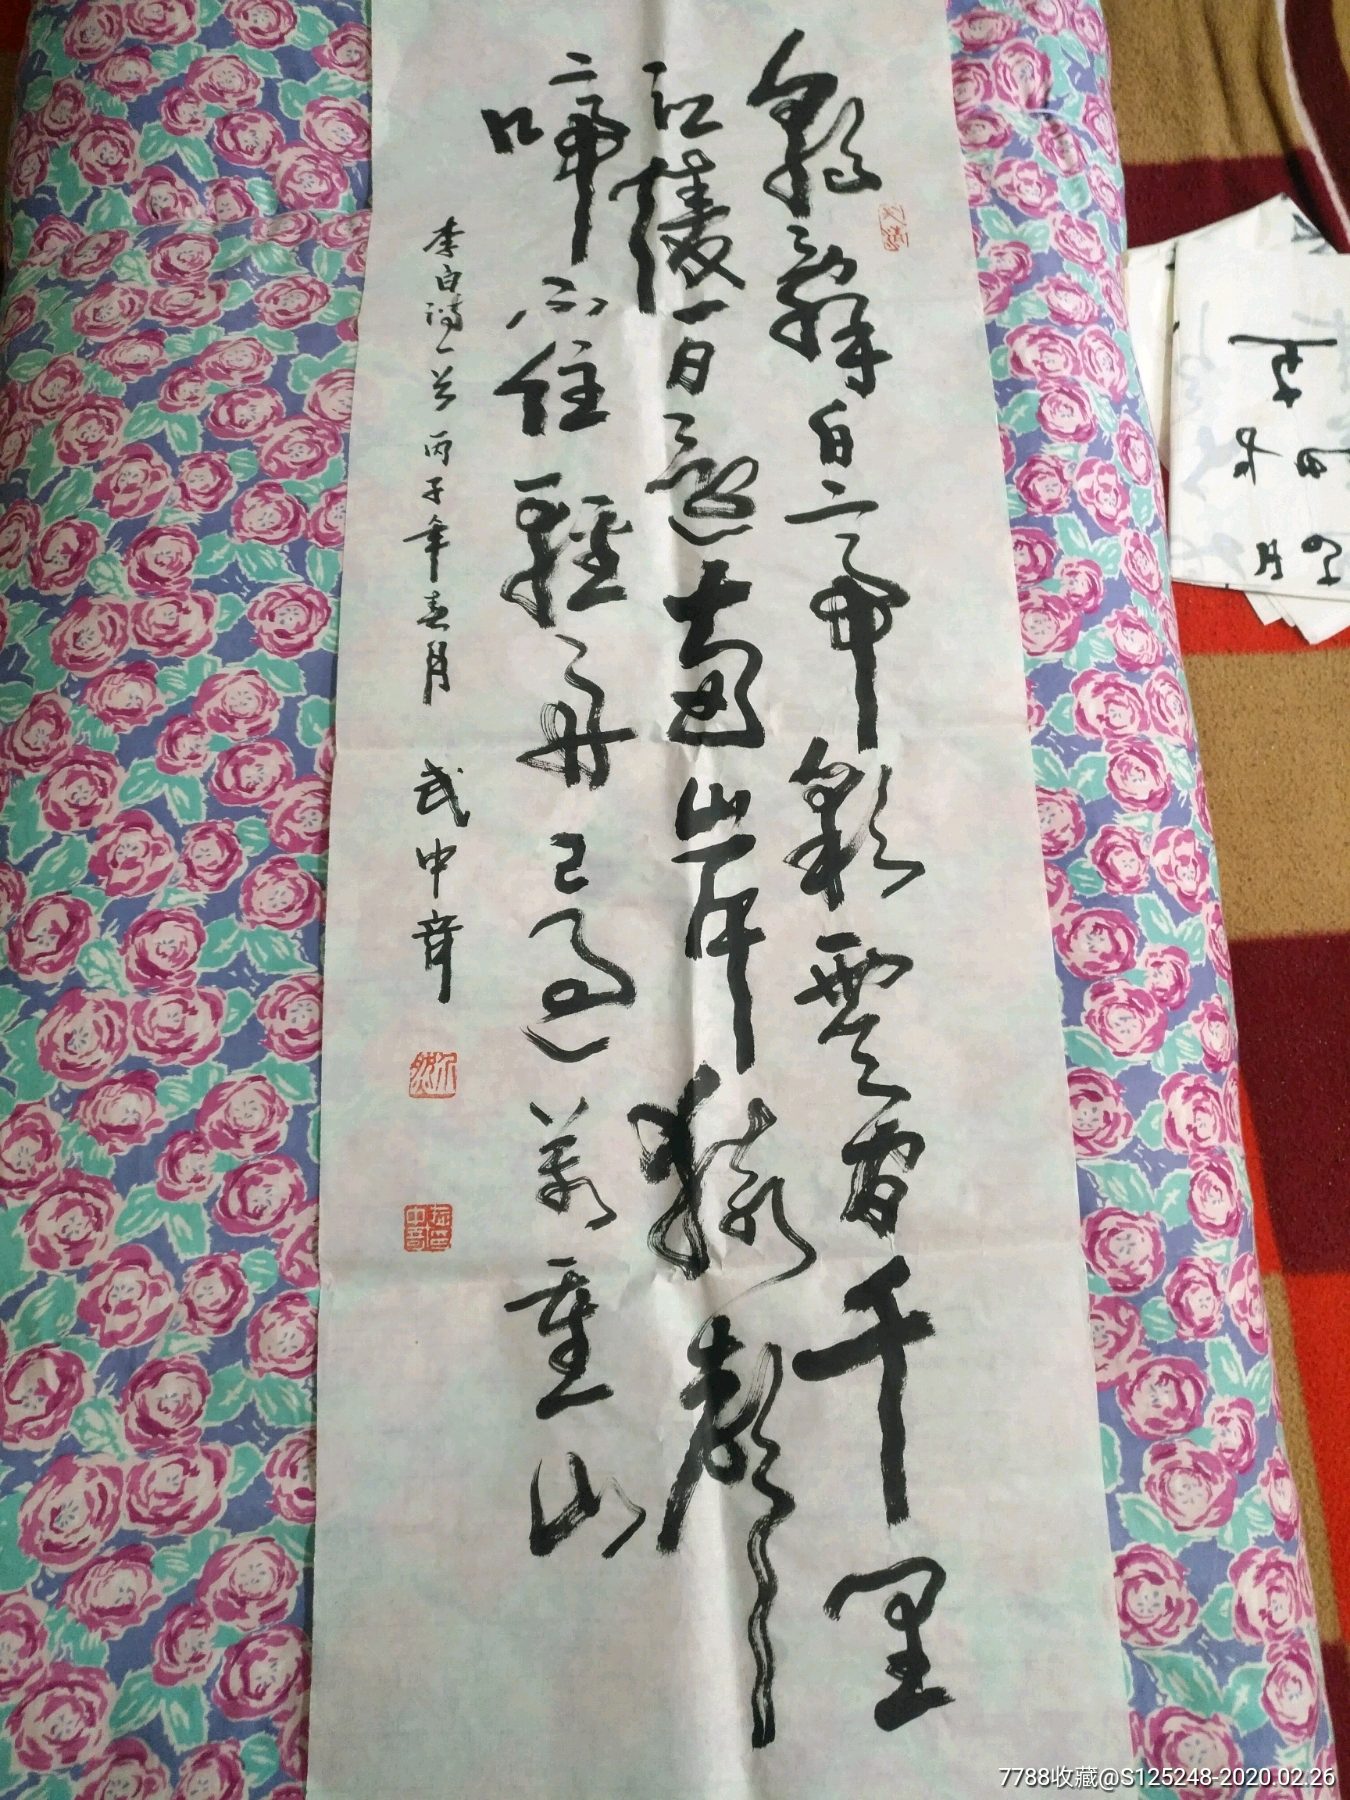 朝辭白帝彩雲間千里
江陵一日還兩岸猿聲
啼不住輕舟已過萬重山
李白詩一首 丙子年春月 武中奇
7788收藏@S125248-2020.02.26